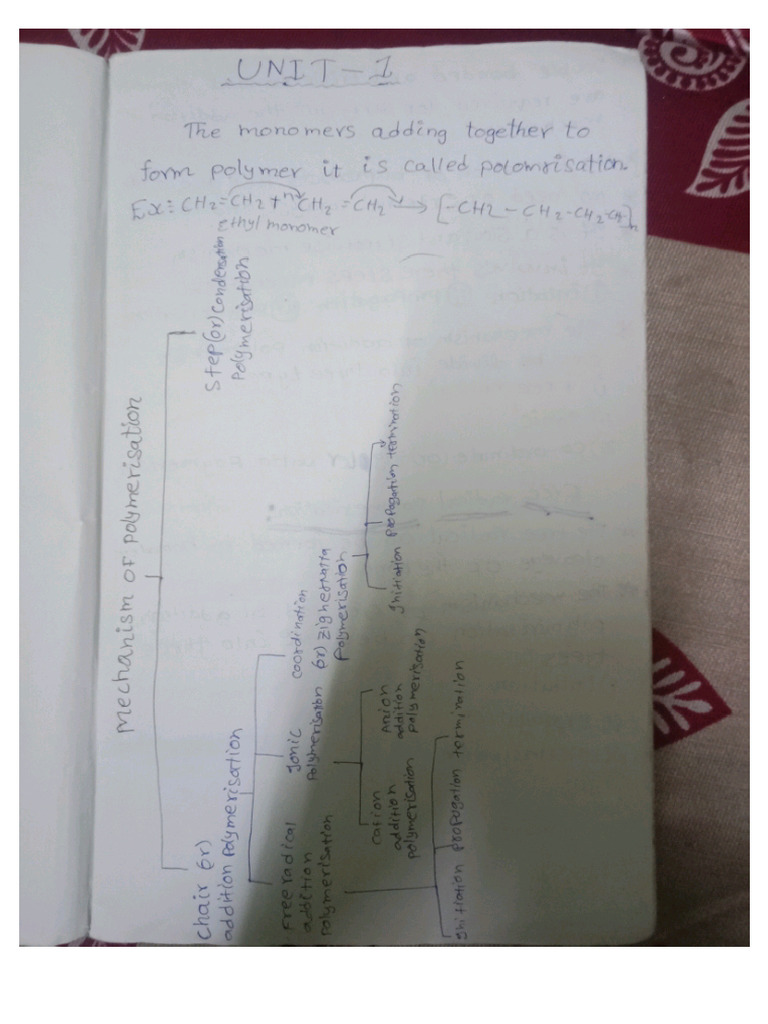 UNIT-1
The monomers adding together to
form polymer it is called polomrisation.
Ex: CH2=CH2 + n CH2 = CH2 → [-CH2 - CH2-CH2-CH2-]n
ethyl monomer
Mechanism of polymerisation
chair (or)
addition polymerisation
Step (or) condensation
polymerisation
Free radical
addition
polymerisation
Ionic
polymerisation
coordination
(or) zighernatta
polymerisation
cation
addition
polymerisation
Anion
addition
polymerisation
Initiation propagation termination
Initiation propagation termination